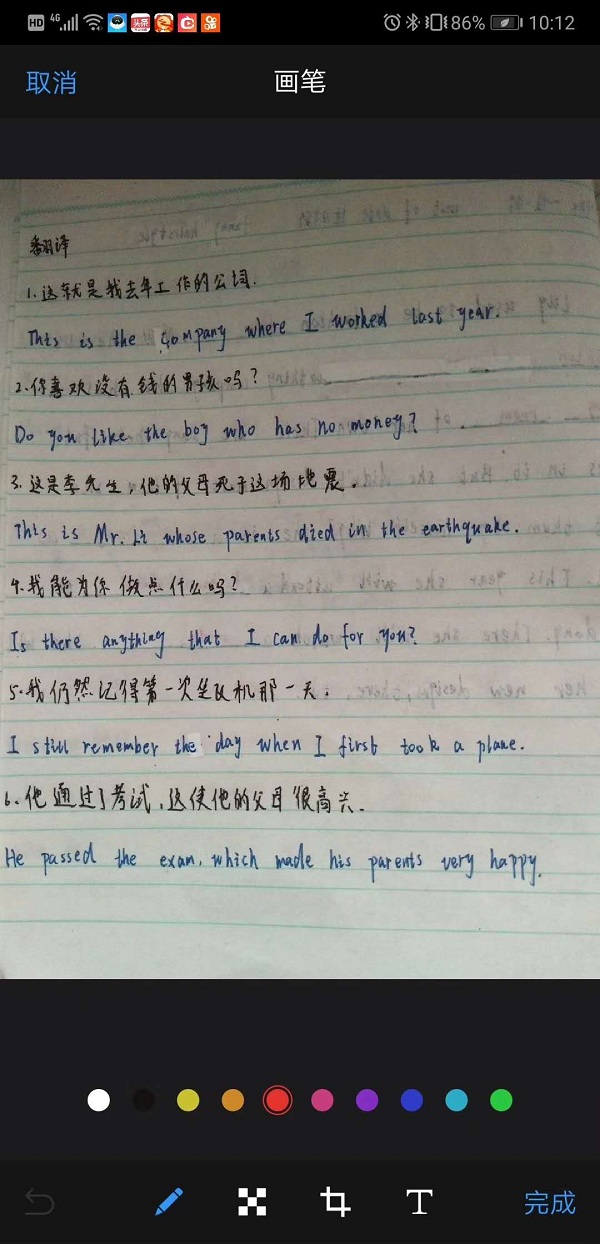 HD 4G 头条 86% 10:12
取消 画笔
翻译
1.这就是我去年工作的公司.
This is the company where I worked last year.
2.你喜欢没有钱的男孩吗?
Do you like the boy who has no money?
3.这是李先生,他的父母死于这场地震.
This is Mr. Li whose parents died in the earthquake.
4.我能为你做点什么吗?
Is there anything that I can do for you?
5.我仍然记得第一次坐飞机那一天.
I still remember the day when I first took a plane.
6.他通过了考试,这使他的父母很高兴.
He passed the exam, which made his parents very happy.
T 完成